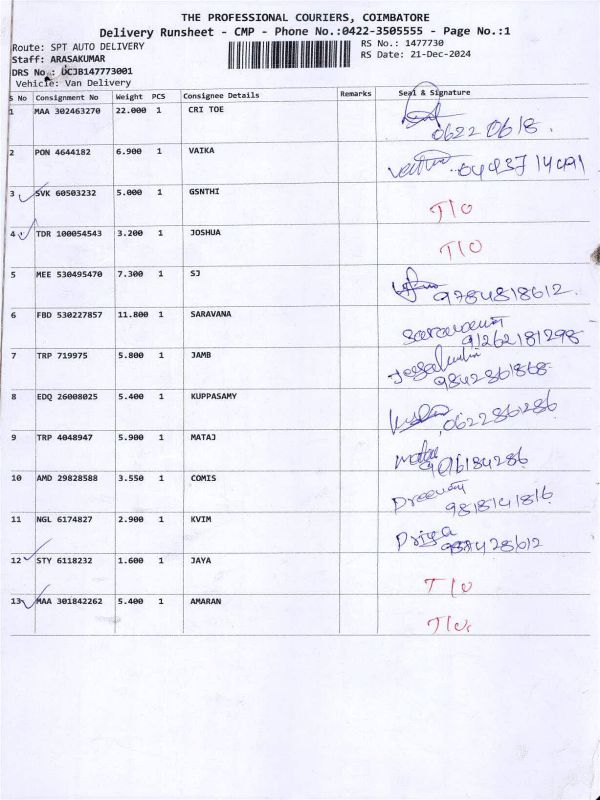 THE PROFESSIONAL COURIERS, COIMBATORE
Delivery Runsheet - CMP - Phone No.:0422-3505555 - Page No.:1
Route: SPT AUTO DELIVERY
RS No.: 1477730
Staff: ARASAKUMAR
RS Date: 21-Dec-2024
DRS No.: DCJB147773001
Vehicle: Van Delivery
S No Consignment No Weight PCS Consignee Details Remarks Seal & Signature
1 MAA 302463270 22.000 1 CRI TOE
06220618.
2 PON 4644182 6.900 1 VAIKA
3 SVK 60503232 5.000 1 GSNTHI T/O
4 TDR 100054543 3.200 1 JOSHUA T/O
5 MEE 530495470 7.300 1 SJ
9784818612.
6 FBD 530227857 11.800 1 SARAVANA
91262181298
7 TRP 719975 5.800 1 JAMB
9842861868.
8 EDQ 26008025 5.400 1 KUPPASAMY
062286286
9 TRP 4048947 5.900 1 MATAJ
10 AMD 29828588 3.550 1 COMIS
9818141816
11 NGL 6174827 2.900 1 KVIM Priya
12 STY 6118232 1.600 1 JAYA T/O
13 MAA 301842262 5.400 1 AMARAN T/O